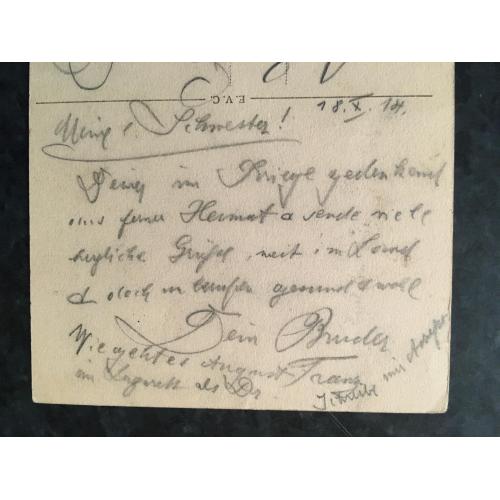 E.V.C.
18.X.14.
Meine l. Schwester!
Deiner im Kriege gedenkend
aus ferner Heimat a sende viele
herzliche Grüße, weit im Land
& doch gesund & woll
Dein Bruder
Franz
Wie geht es August
im als Dr.
mir